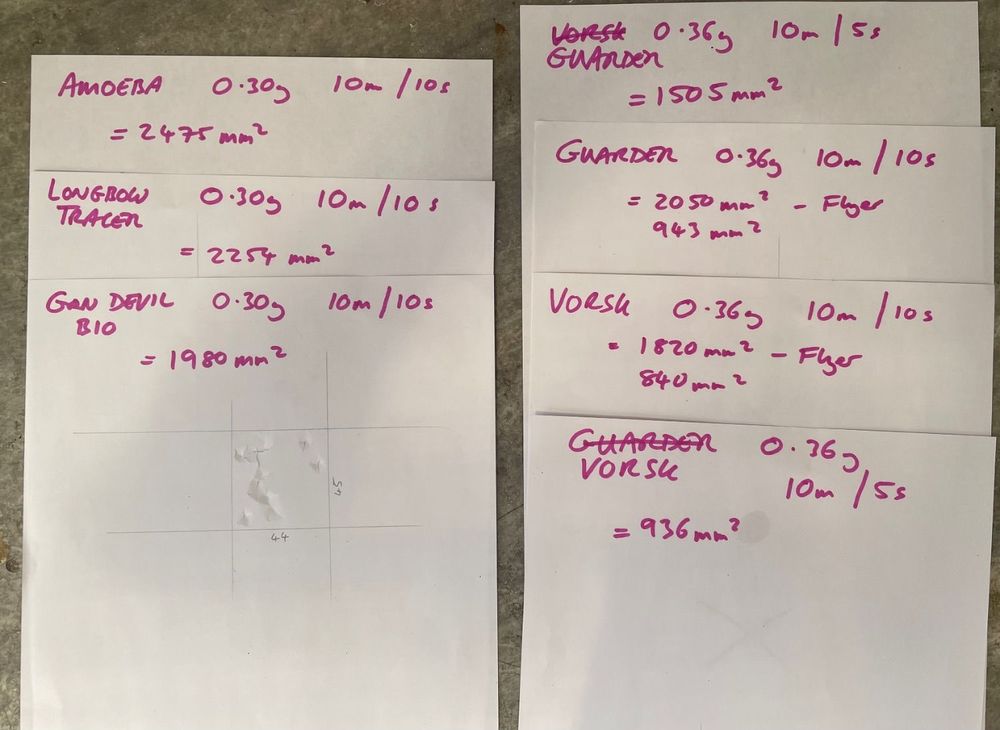 AMOEBA 0.30g 10m/10s
= 2475 mm²
LONGBOW 0.30g 10m/10s
TRACER
= 2254 mm²
GAN DEVIL 0.30g 10m/10s
BIO
= 1980 mm²
45
44
VORSK 0.36g 10m/5s
GUARDER
= 1505 mm²
GUARDER 0.36g 10m/10s
= 2050 mm² - Flyer
943 mm²
VORSK 0.36g 10m/10s
= 1820 mm² - Flyer
840 mm²
GUARDER 0.36g
VORSK
10m/5s
= 936 mm²